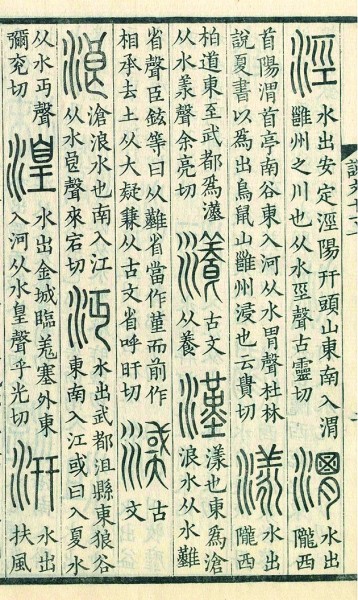 涇
水出安定涇陽幵頭山東南入渭
雝州之川也从水巠聲古靈切
渭
水出
隴西
首陽渭首亭南谷東入河从水胃聲杜林
說夏書以爲出鳥鼠山雝州浸也云貴切
漾
水出
隴西
柏道東至武都爲漢
从水羕聲余亮切
瀁
古文
从養
漢
漾也東爲滄
浪水从水難
省聲臣鉉等曰从難省當作堇而前作
相承去土从大疑兼从古文省呼旰切
古
文
浪
滄浪水也南入江
从水良聲來宕切
沔
水出武都沮縣東狼谷
東南入江或曰入夏水
从水丏聲
彌兖切
湟
水出金城臨羌塞外東
入河从水皇聲乎光切
汧
水出
扶風